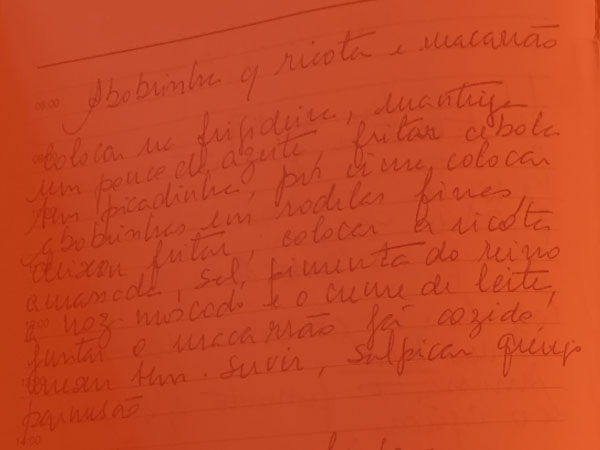 Abobrinha c/ ricota e macarrão
08:00
Colocar na frigideira, manteiga
um pouco de azeite, fritar cebola
bem picadinha, por cima colocar
abobrinhas em rodelas finas,
deixar fritar, colocar a ricota
amassada, sal, pimenta do reino
noz-moscada e o creme de leite,
juntar o macarrão já cozido,
mexer bem. Servir, salpicar queijo
parmesão.
14:00